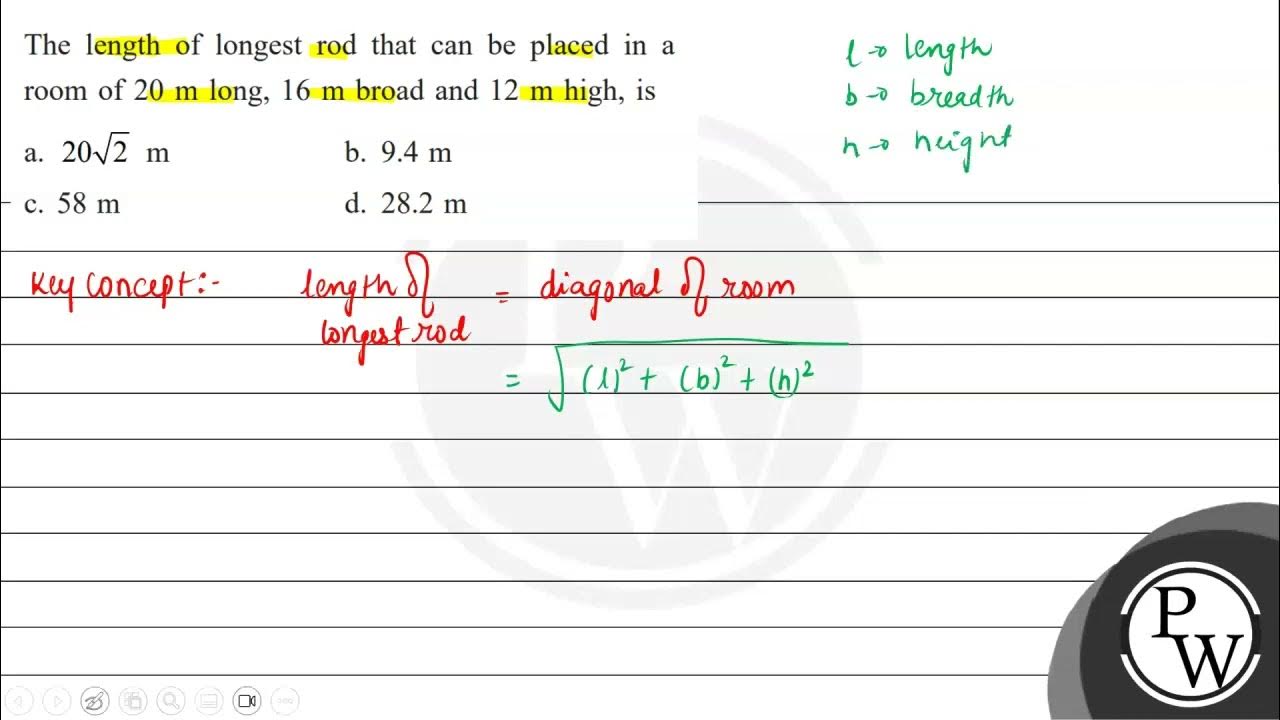 The length of longest rod that can be placed in a
room of 20 m long, 16 m broad and 12 m high, is
a. 20√2 m
b. 9.4 m
c. 58 m
d. 28.2 m
l → length
b → breadth
h → height
Key concept:- length of longest rod = diagonal of room
= √(l)² + (b)² + (h)²
PW